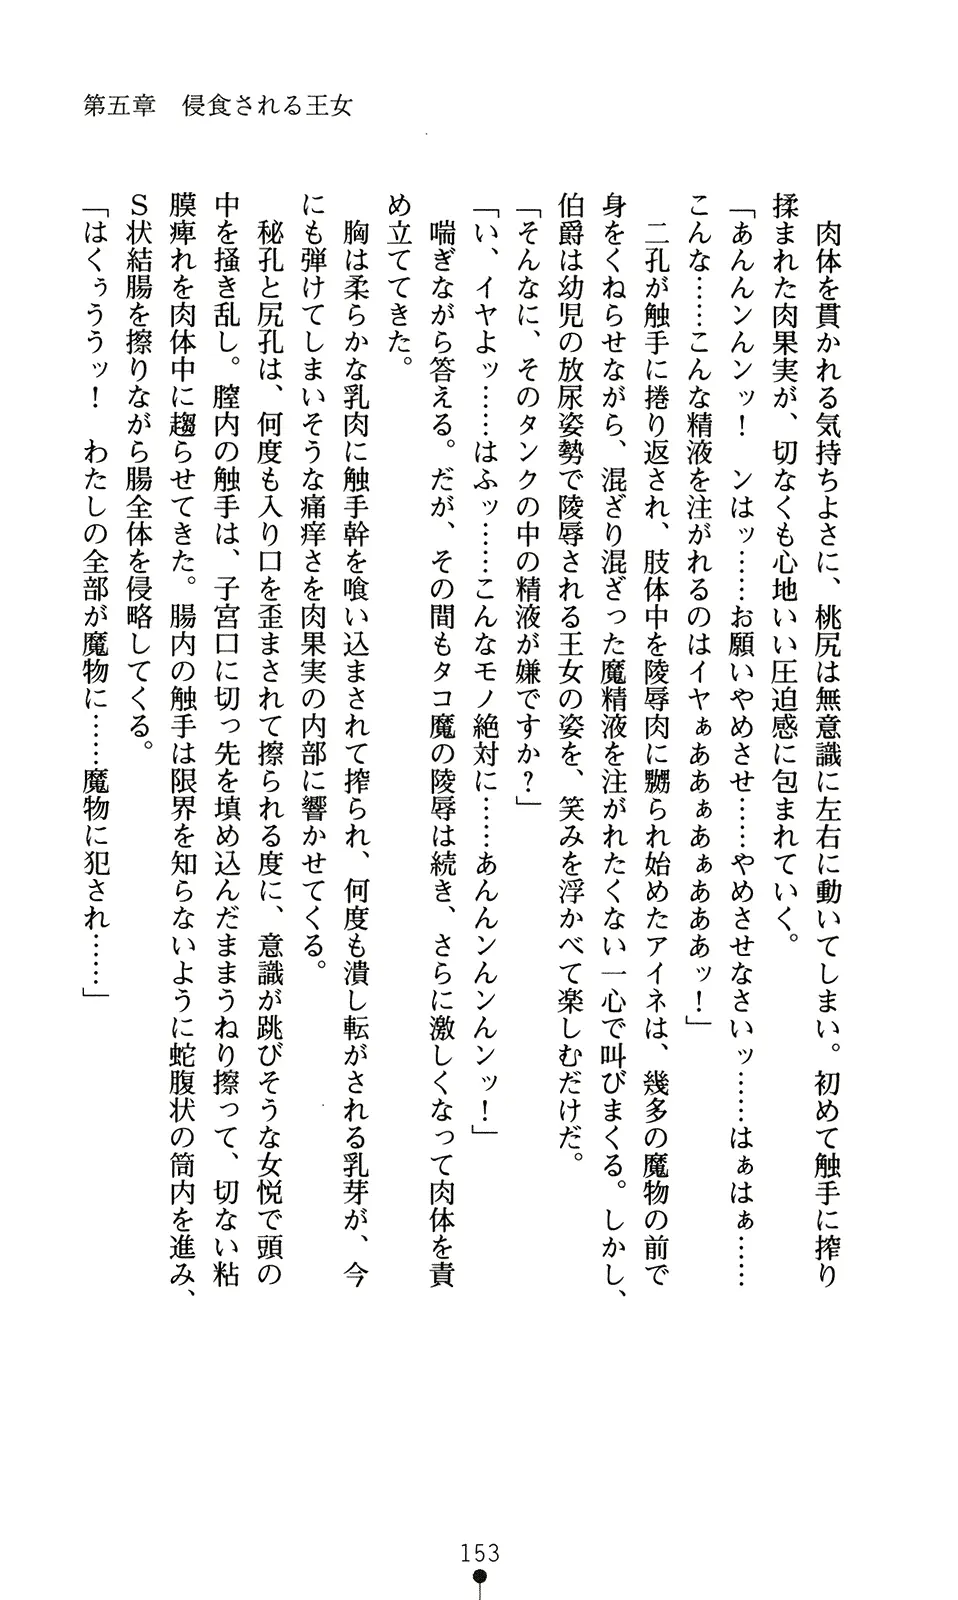 第五章　侵食される王女
　肉体を貫かれる気持ちよさに、桃尻は無意識に左右に動いてしまい。初めて触手に搾り
揉まれた肉果実が、切なくも心地いい圧迫感に包まれていく。
「あんんンんンッ！　ンはッ……お願いやめさせ……やめさせなさいッ……はぁはぁ……
こんな……こんな精液を注がれるのはイヤぁああぁあぁあああッ！」
　二孔が触手に捲り返され、肢体中を陵辱肉に嬲られ始めたアイネは、幾多の魔物の前で
身をくねらせながら、混ざり混ざった魔精液を注がれたくない一心で叫びまくる。しかし、
伯爵は幼児の放尿姿勢で陵辱される王女の姿を、笑みを浮かべて楽しむだけだ。
「そんなに、そのタンクの中の精液が嫌ですか？」
「い、イヤよッ……はふッ……こんなモノ絶対に……あんんンんンんンッ！」
　喘ぎながら答える。だが、その間もタコ魔の陵辱は続き、さらに激しくなって肉体を責
め立ててきた。
　胸は柔らかな乳肉に触手幹を喰い込まされて搾られ、何度も潰し転がされる乳芽が、今
にも弾けてしまいそうな痛痒さを肉果実の内部に響かせてくる。
　秘孔と尻孔は、何度も入り口を歪まされて擦られる度に、意識が跳びそうな女悦で頭の
中を掻き乱し。膣内の触手は、子宮口に切っ先を填め込んだままうねり擦って、切ない粘
膜痺れを肉体中に趨らせてきた。腸内の触手は限界を知らないように蛇腹状の筒内を進み、
Ｓ状結腸を擦りながら腸全体を侵略してくる。
「はくぅううッ！　わたしの全部が魔物に……魔物に犯され……」
153